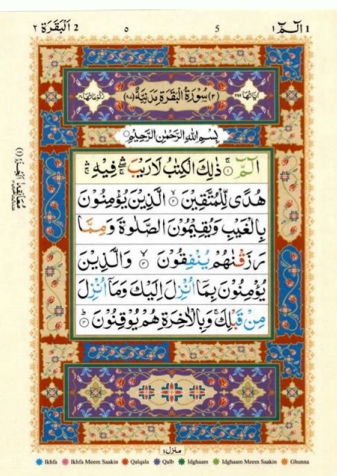 ٢ البقرة 2 ٥ 5 الٓمّٓ ١ 1
(٢) سُوْرَةُ الْبَقَرَةِ مَدَنِيَّةٌ (٨٧)
بِسْمِ اللهِ الرَّحْمٰنِ الرَّحِيْمِ
الٓمّٓ ۚ ذٰلِكَ الْكِتٰبُ لَا رَيْبَ ۛ فِيْهِ ۛ
هُدًى لِّلْمُتَّقِيْنَ ۙ الَّذِيْنَ يُؤْمِنُوْنَ
بِالْغَيْبِ وَيُقِيْمُوْنَ الصَّلٰوةَ وَمِمَّا
رَزَقْنٰهُمْ يُنْفِقُوْنَ ۙ وَالَّذِيْنَ
يُؤْمِنُوْنَ بِمَآ اُنْزِلَ اِلَيْكَ وَمَآ اُنْزِلَ
مِنْ قَبْلِكَ ۚ وَبِالْاٰخِرَةِ هُمْ يُوْقِنُوْنَ ؕ
منزل ١
Ikhfa Ikhfa Meem Saakin Qalqala Qalb Idghaam Idghaam Meem Saakin Ghunna